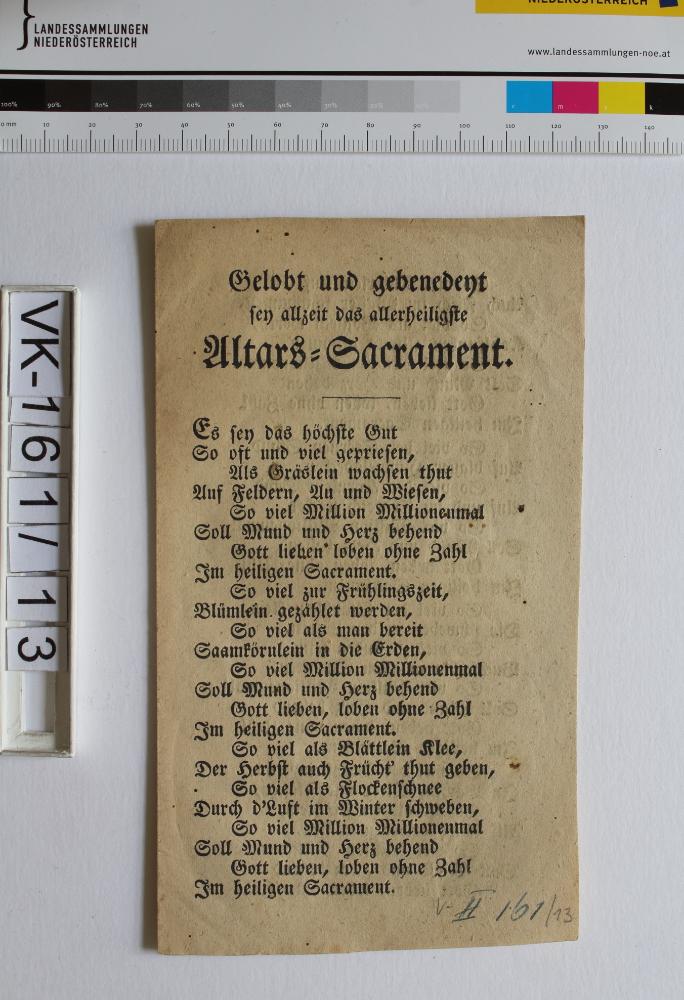 LANDESSAMMLUNGEN
NIEDERÖSTERREICH
NIEDERÖSTERREICH
www.landessammlungen-noe.at
100% 90% 80% 70% 60% 50% 40% 30% 20% 10% c m y k
0 mm 10 20 30 40 50 60 70 80 90 100 110 120 130 140
VK-161/13
Gelobt und gebenedeyt
sey allzeit das allerheiligste
Altars-Sacrament.
Es sey das höchste Gut
So oft und viel gepriesen,
Als Gräslein wachsen thut
Auf Feldern, Au und Wiesen,
So viel Million Millionenmal
Soll Mund und Herz behend
Gott lieben loben ohne Zahl
Im heiligen Sacrament.
So viel zur Frühlingszeit,
Blümlein gezählet werden,
So viel als man bereit
Saamkörnlein in die Erden,
So viel Million Millionenmal
Soll Mund und Herz behend
Gott lieben, loben ohne Zahl
Im heiligen Sacrament.
So viel als Blättlein Klee,
Der Herbst auch Frücht' thut geben,
So viel als Flockenschnee
Durch d'Luft im Winter schweben,
So viel Million Millionenmal
Soll Mund und Herz behend
Gott lieben, loben ohne Zahl
Im heiligen Sacrament.
V-II 161/13